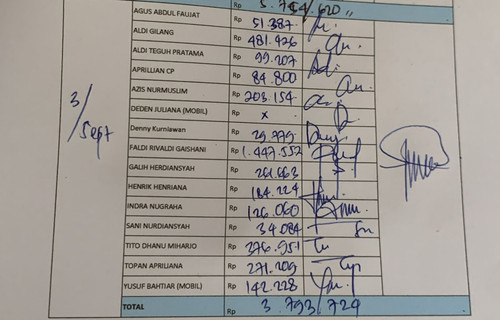 Rp 5.744.620,,
AGUS ABDUL FAUJAT Rp 51.387
ALDI GILANG Rp 481.426
ALDI TEGUH PRATAMA Rp 99.207
APRILLIAN CP Rp 84.800
AZIS NURMUSLIM Rp 203.154
DEDEN JULIANA (MOBIL) Rp x
Denny Kurniawan Rp 29.779
3/Sept FALDI RIVALDI GAISHANI Rp 1.447.552
GALIH HERDIANSYAH Rp 261.663
HENRIK HENRIANA Rp 184.224
INDRA NUGRAHA Rp 126.060
SANI NURDIANSYAH Rp 34.084
TITO DHANU MIHARJO Rp 376.951
TOPAN APRILIANA Rp 271.209
YUSUF BAHTIAR (MOBIL) Rp 142.228
TOTAL Rp 3.793.724